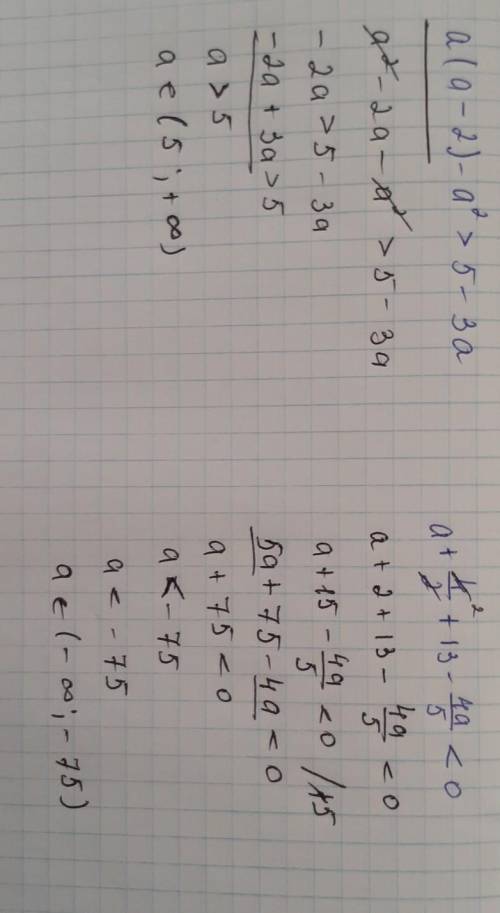 a(a-2)-a²>5-3a
a²-2a-a²>5-3a
-2a>5-3a
-2a+3a>5
a>5
a∈(5;+∞)
a+4/2+13-4a/5<0
a+2+13-4a/5<0
a+15-4a/5<0 /·5
5a+75-4a<0
a+75<0
a<-75
a<-75
a∈(-∞;-75)